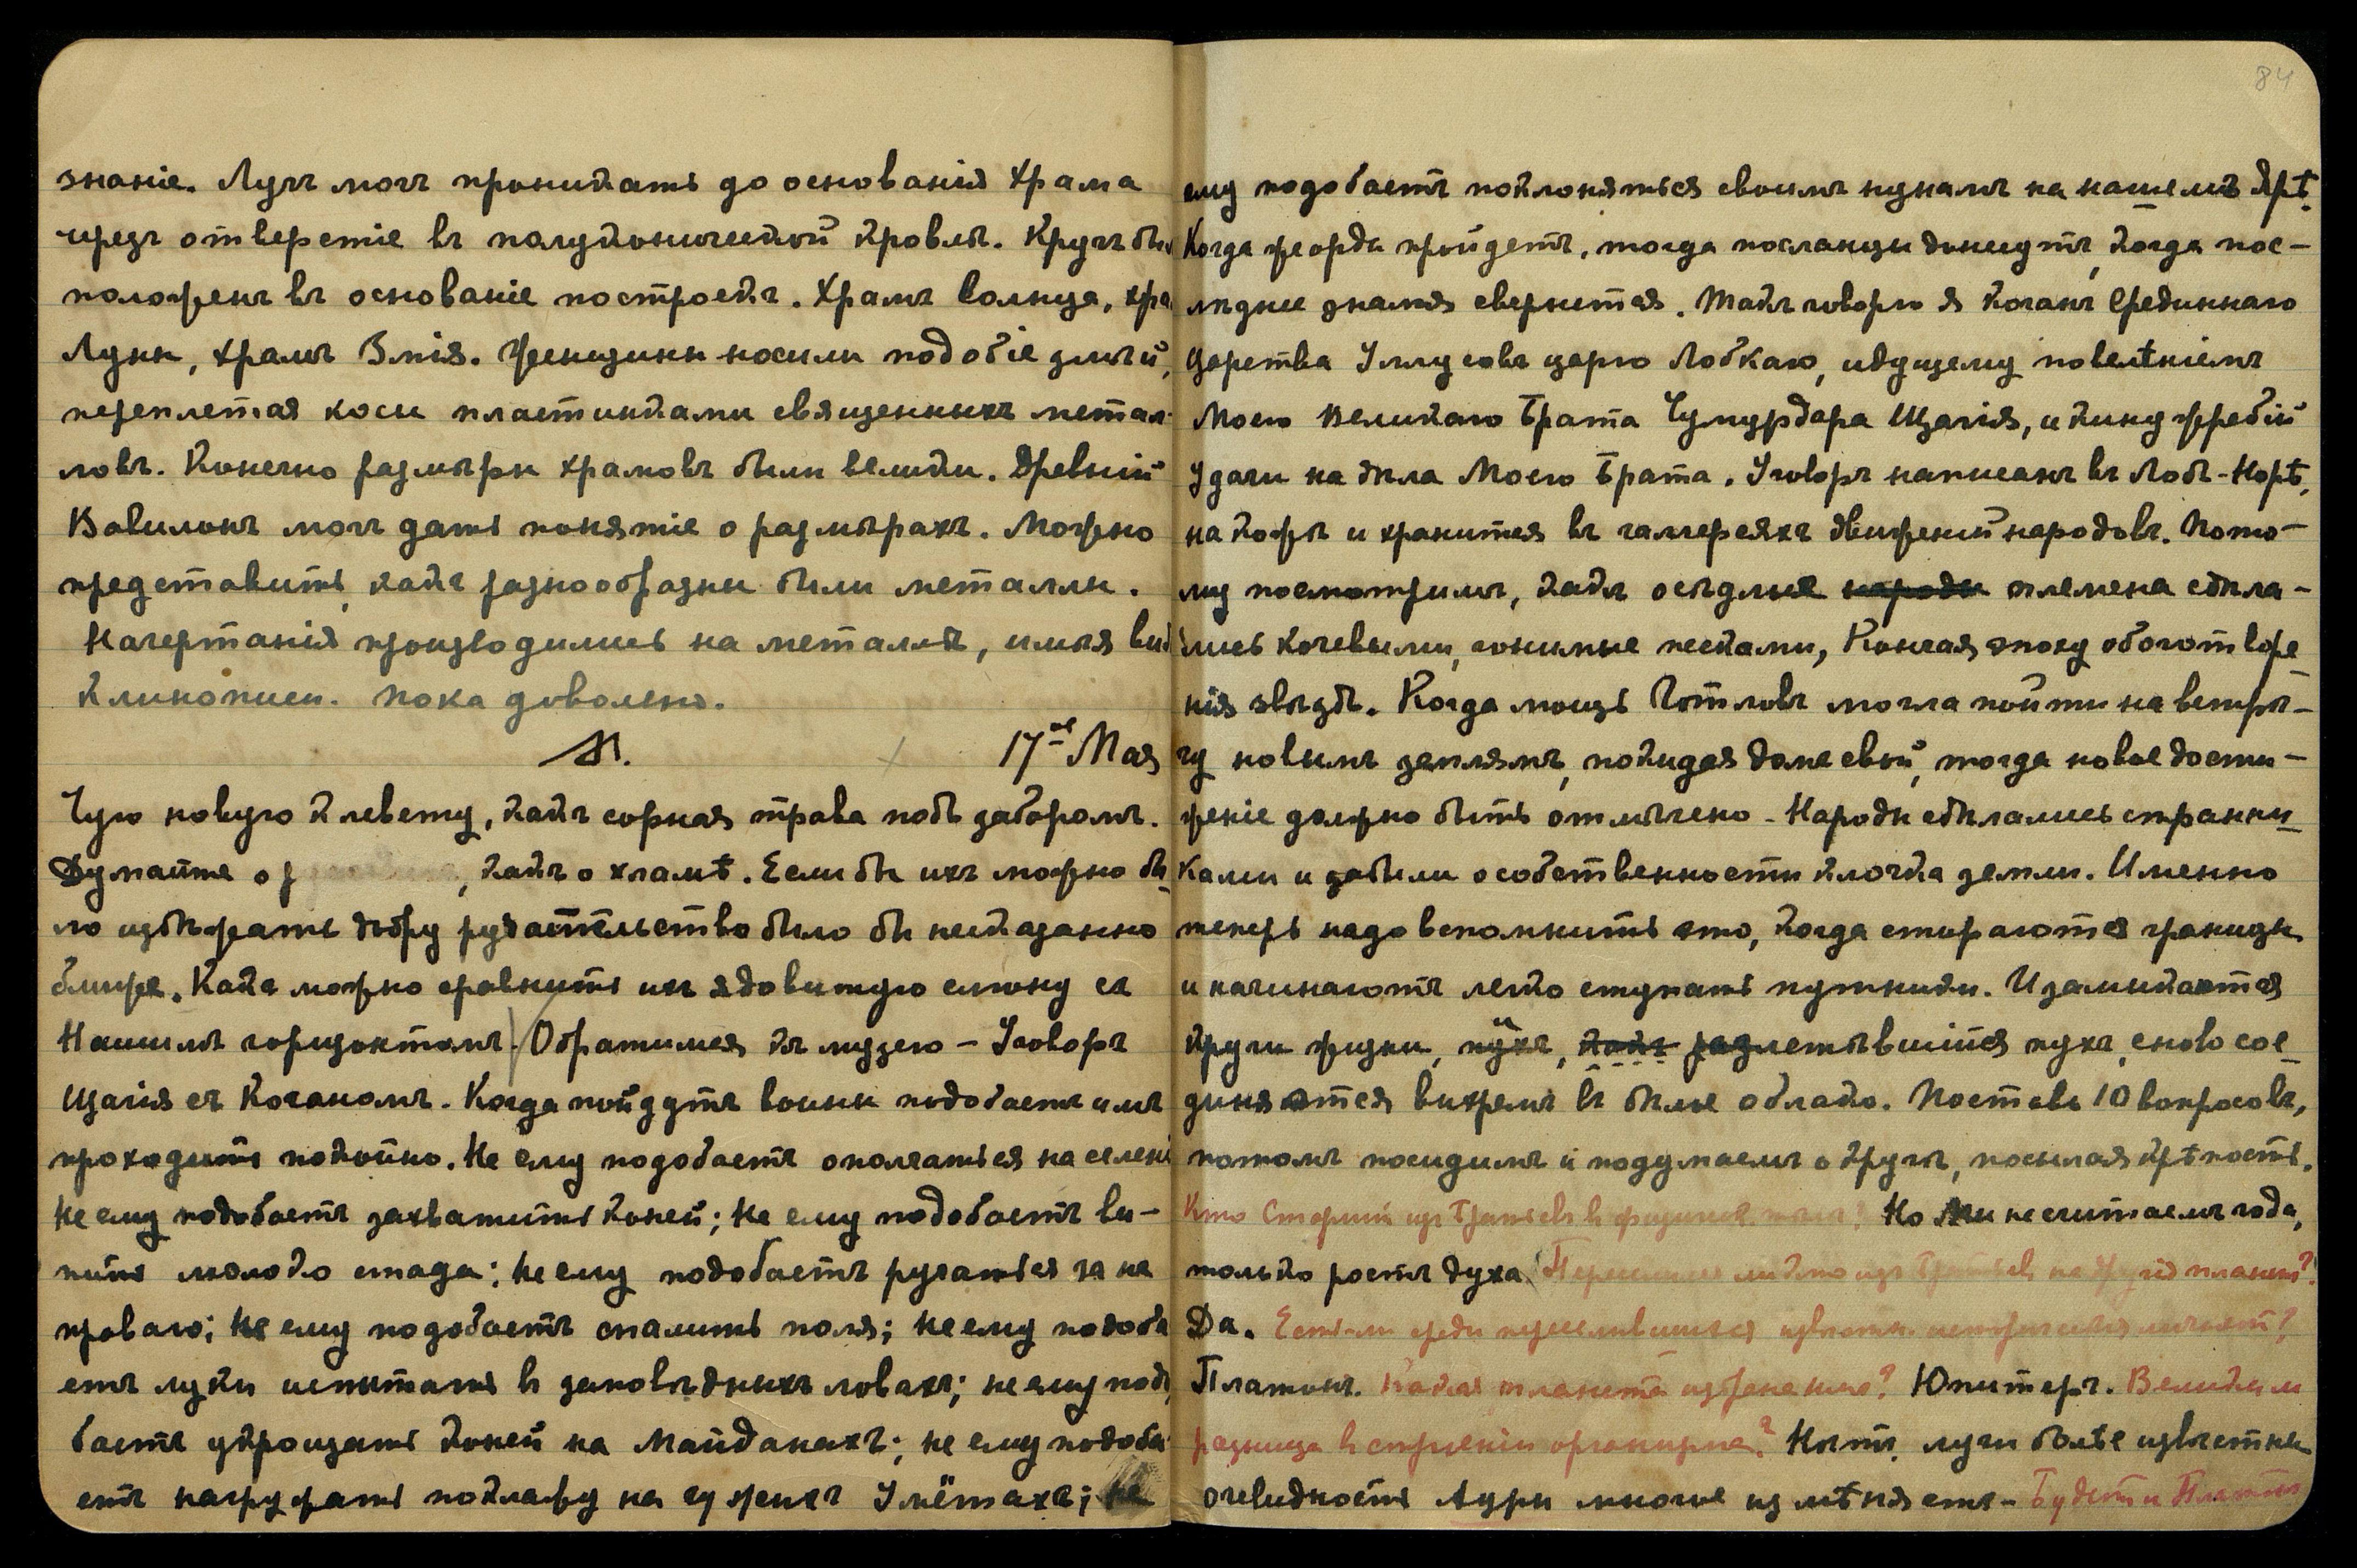 знаніе. Лучъ могъ проникать до основанія храма
чрезъ отверстіе въ полуконической кровлѣ. Кругъ бы
положенъ въ основаніе построекъ. Храмъ Солнца, хра
Луны, храмъ Змія. Женщины носили подобіе змѣй,
переплетая косы пластинками священныхъ метал-
ловъ. Конечно размѣры храмовъ были велики. Древній
Вавилонъ могъ дать понятіе о размѣрахъ. Можно
представить, какъ разнообразны были металлы.
Начертанія производились на металлѣ, имѣя вид
клинописи. Пока довольно.
17го Мая
Чую новую клевету, какъ сорная трава подъ заборомъ.
Думайте о , какъ о хламѣ. Если бы ихъ можно бы-
ло избѣжать добру ручательство было бы несказанно
ближе. Какъ можно сравнить ихъ ядовитую слюну съ
Нашимъ горизонтомъ. Обратимся къ музею – Уговоръ
Щагія съ Коганомъ. Когда пойдутъ воины подобаетъ имъ
проходить покойно. Не ему подобаетъ ополчаться на селені
Не ему подобаетъ захватить коней; Не ему подобаетъ вы-
пить молоко стада; Не ему подобаетъ ручаться за не
праваго; Не ему подобаетъ спалить поля; Не ему подоба
етъ луки испытать въ заповѣдныхъ ловахъ; не ему подо
баетъ укрощать коней на Майданахъ; не ему подоба
етъ нагружать поклажу на чужихъ Умётахъ; не
84
ему подобаетъ поклоняться своимъ нуламъ на нашемъ Ярѣ.
Когда же орды пройдетъ, тогда посланцы донесутъ, когда пос-
лѣднее знамя свернется. Такъ говорю я Коганъ Срединнаго
Царства Уллусовъ царю Лобкаю, идущему повелѣніемъ
Моего Великаго Брата Чумурдара Щагія, и кину жребій
Удачи на дѣла Моего Брата. Уговоръ написанъ въ Лобъ-Норѣ,
на кожѣ и хранится въ галлереяхъ движеній народовъ. Пото-
му посмотримъ, какъ осѣдлые народы племена сдѣла-
лись кочевыми, гонимые песками, Кончая эпоху обоготворе
нія звѣздъ. Когда мощь Готловъ могла пойти на встрѣ-
чу новымъ землямъ, покидая домъ свой, тогда новое дости-
женіе должно быть отмѣчено – Народы сдѣлались странни-
ками и забыли о собственности клочка земли. Именно
теперь надо вспомнить это, когда стираются границы
и начинаютъ легко ступать путники. И замыкаются
круги жизни, пухъ, какъ разлетѣвшійся пухъ, снова сое-
диняется вихремъ въ бѣлое облако. Поставь 10 вопросовъ,
потомъ посидимъ и подумаемъ о другѣ, посылая крѣпость.
Кто Старшій изъ Братьевъ въ физическ. тѣлѣ? Но Мы не считаемъ года,
только ростъ духа. (Переселился ли кто изъ Братьевъ на другія планеты?)
Да. Есть ли среди переселившихся извѣстн. историческія личности?
Платонъ. Какая планета избрана имъ? Юпитеръ. Велика ли
разница въ строеніи организма? Нѣтъ, лучи болѣе извѣстны
очевидность Ауры многое измѣняетъ – Будетъ и Платонъ